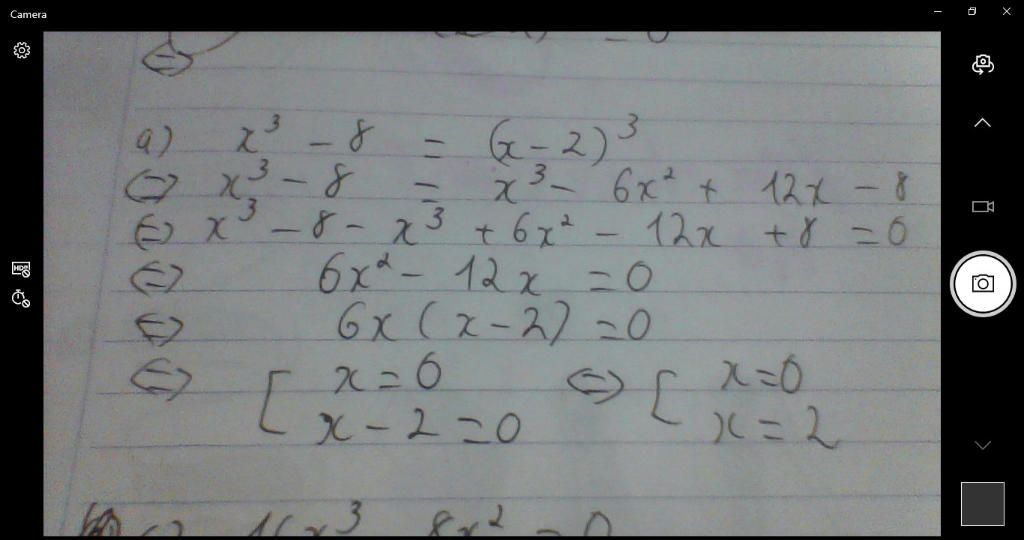 Camera
⇔
a) x³ - 8 = (x - 2)³
⇔ x³ - 8 = x³ - 6x² + 12x - 8
⇔ x³ - 8 - x³ + 6x² - 12x + 8 = 0
⇔ 6x² - 12x = 0
⇔ 6x (x - 2) = 0
⇔ [ x = 0 ⇔ [ x = 0
x - 2 = 0 x = 2